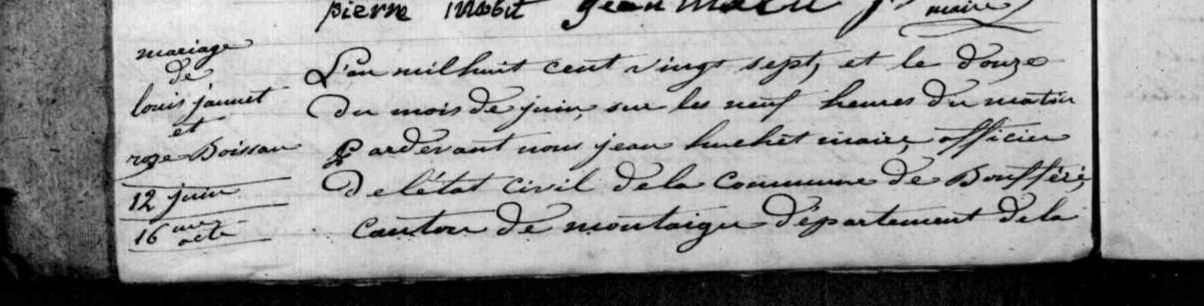 pierre
maire
mariage
de
louis jaunet
et
roze Boisson
12 juin
16me
acte
L'an mil huit cent vingt sept, et le douze
du mois de juin, sur les neuf heures du matin
Pardevant nous jean huchet maire, officier
de l'état civil de la Commune de Boufféré,
canton de montaigu département de la